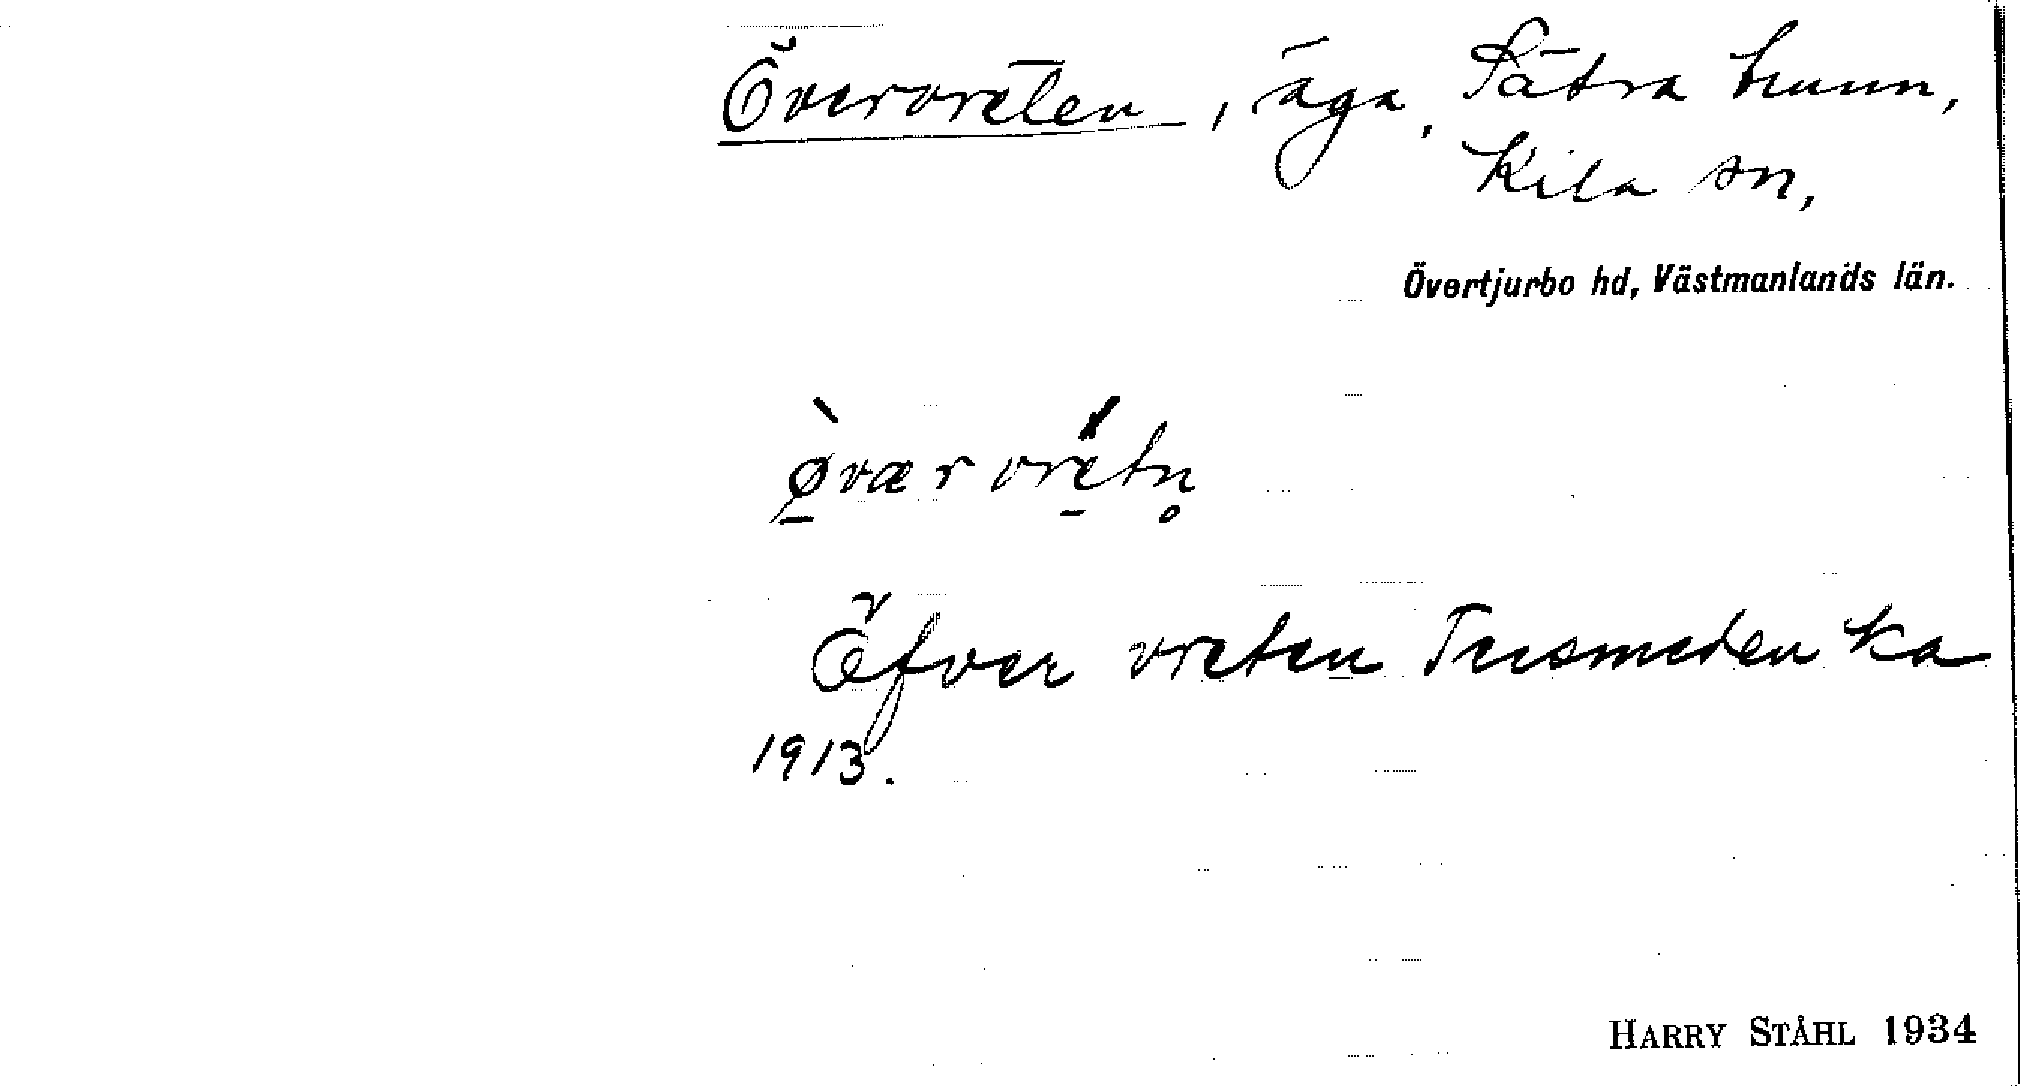 Övervreten, äga, Sätra brunn,
Kila sn,
Övertjurbo hd, Västmanlands län.
ø̱̀vær vré̱tn̥
Öfver vreten Tersmeden ka
1913.
HARRY STÅHL 1934